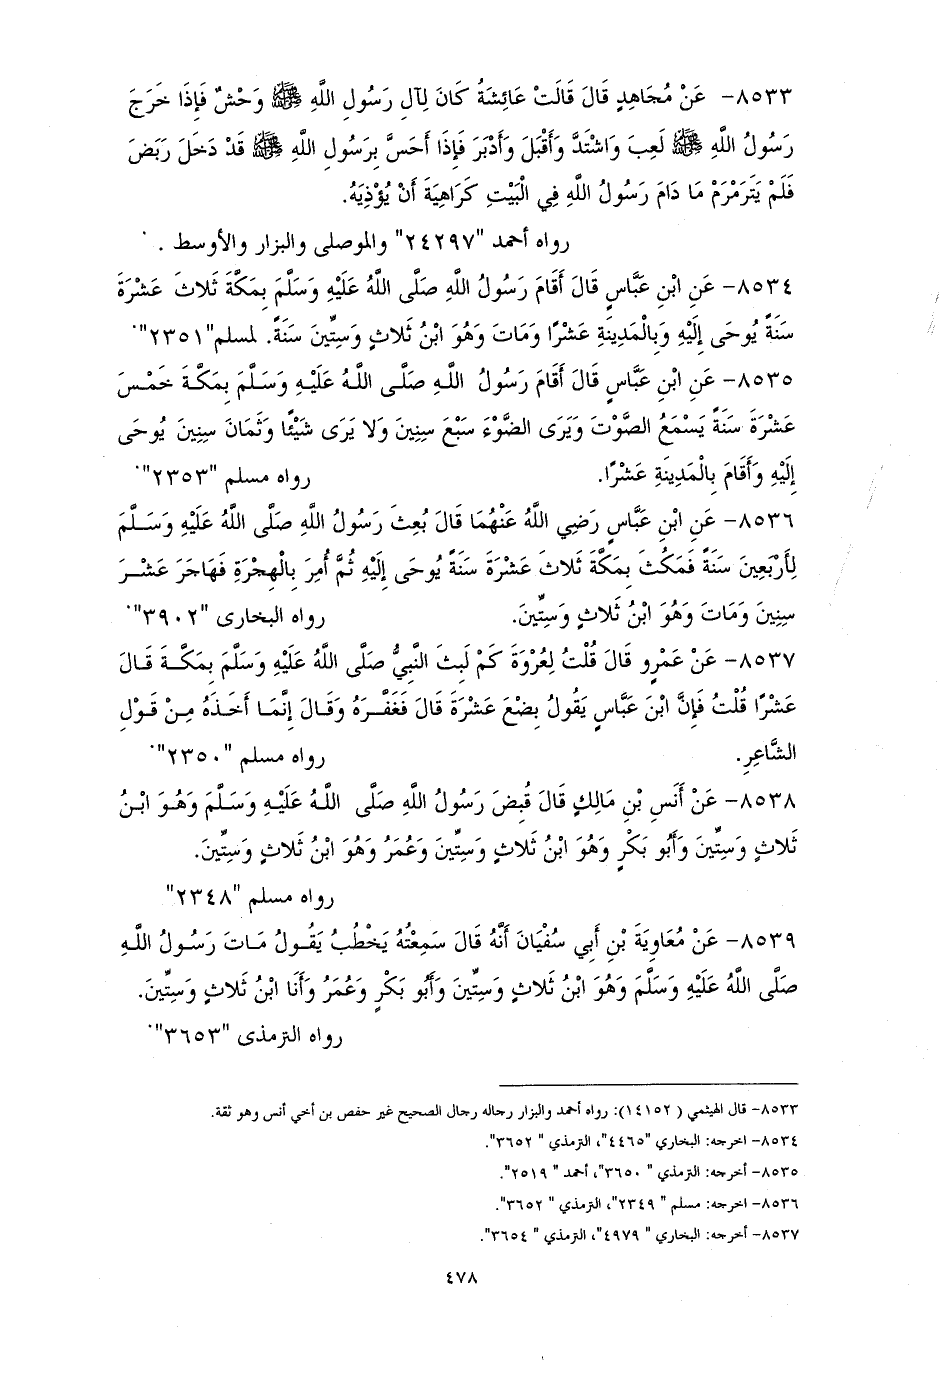 ٨٥٣٣- عَنْ مُجَاهِدٍ قَالَ قَالَتْ عَائِشَةُ كَانَ لِآلِ رَسُولِ اللَّهِ ﷺ وَحْشٌ فَإِذَا خَرَجَ
رَسُولُ اللَّهِ ﷺ لَعِبَ وَاشْتَدَّ وَأَقْبَلَ وَأَدْبَرَ فَإِذَا أَحَسَّ بِرَسُولِ اللَّهِ ﷺ قَدْ دَخَلَ رَبَضَ
فَلَمْ يَتَرَمْرَمْ مَا دَامَ رَسُولُ اللَّهِ فِي الْبَيْتِ كَرَاهِيَةَ أَنْ يُؤْذِيَهُ.
رواه أحمد "٢٤٢٩٧" والموصلى والبزار والأوسط .
٨٥٣٤- عَنِ ابْنِ عَبَّاسٍ قَالَ أَقَامَ رَسُولُ اللَّهِ صَلَّى اللَّهُ عَلَيْهِ وَسَلَّمَ بِمَكَّةَ ثَلَاثَ عَشْرَةَ
سَنَةً يُوحَى إِلَيْهِ وَبِالْمَدِينَةِ عَشْرًا وَمَاتَ وَهُوَ ابْنُ ثَلَاثٍ وَسِتِّينَ سَنَةً. لمسلم"٢٣٥١".
٨٥٣٥- عَنِ ابْنِ عَبَّاسٍ قَالَ أَقَامَ رَسُولُ اللَّهِ صَلَّى اللَّهُ عَلَيْهِ وَسَلَّمَ بِمَكَّةَ خَمْسَ
عَشْرَةَ سَنَةً يَسْمَعُ الصَّوْتَ وَيَرَى الضَّوْءَ سَبْعَ سِنِينَ وَلَا يَرَى شَيْئًا وَثَمَانَ سِنِينَ يُوحَى
إِلَيْهِ وَأَقَامَ بِالْمَدِينَةِ عَشْرًا. رواه مسلم "٢٣٥٣".
٨٥٣٦- عَنِ ابْنِ عَبَّاسٍ رَضِي اللَّهُ عَنْهُمَا قَالَ بُعِثَ رَسُولُ اللَّهِ صَلَّى اللَّهُ عَلَيْهِ وَسَلَّمَ
لِأَرْبَعِينَ سَنَةً فَمَكُثَ بِمَكَّةَ ثَلَاثَ عَشْرَةَ سَنَةً يُوحَى إِلَيْهِ ثُمَّ أُمِرَ بِالْهِجْرَةِ فَهَاجَرَ عَشْرَ
سِنِينَ وَمَاتَ وَهُوَ ابْنُ ثَلَاثٍ وَسِتِّينَ. رواه البخارى "٣٩٠٢".
٨٥٣٧- عَنْ عَمْرٍو قَالَ قُلْتُ لِعُرْوَةَ كَمْ لَبِثَ النَّبِيُّ صَلَّى اللَّهُ عَلَيْهِ وَسَلَّمَ بِمَكَّةَ قَالَ
عَشْرًا قُلْتُ فَإِنَّ ابْنَ عَبَّاسٍ يَقُولُ بِضْعَ عَشْرَةَ قَالَ فَغَفَّرَهُ وَقَالَ إِنَّمَا أَخَذَهُ مِنْ قَوْلِ
الشَّاعِرِ. رواه مسلم "٢٣٥٠".
٨٥٣٨- عَنْ أَنَسِ بْنِ مَالِكٍ قَالَ قُبِضَ رَسُولُ اللَّهِ صَلَّى اللَّهُ عَلَيْهِ وَسَلَّمَ وَهُوَ ابْنُ
ثَلَاثٍ وَسِتِّينَ وَأَبُو بَكْرٍ وَهُوَ ابْنُ ثَلَاثٍ وَسِتِّينَ وَعُمَرُ وَهُوَ ابْنُ ثَلَاثٍ وَسِتِّينَ.
رواه مسلم "٢٣٤٨"
٨٥٣٩- عَنْ مُعَاوِيَةَ بْنِ أَبِي سُفْيَانَ أَنَّهُ قَالَ سَمِعْتُهُ يَخْطُبُ يَقُولُ مَاتَ رَسُولُ اللَّهِ
صَلَّى اللَّهُ عَلَيْهِ وَسَلَّمَ وَهُوَ ابْنُ ثَلَاثٍ وَسِتِّينَ وَأَبُو بَكْرٍ وَعُمَرُ وَأَنَا ابْنُ ثَلَاثٍ وَسِتِّينَ.
رواه الترمذى "٣٦٥٣".
٨٥٣٣- قال الهيثمي ( ١٤١٥٢): رواه أحمد والبزار رجاله رجال الصحيح غير حفص بن أخي أنس وهو ثقة.
٨٥٣٤- اخرجه: البخاري "٤٤٦٥"، الترمذي " ٣٦٥٢".
٨٥٣٥- أخرجه: الترمذي " ٣٦٥٠"، أحمد " ٢٥١٩".
٨٥٣٦- اخرجه: مسلم " ٢٣٤٩"، الترمذي " ٣٦٥٢".
٨٥٣٧- أخرجه: البخاري " ٤٩٧٩"، الترمذي " ٣٦٥٤".
٤٧٨